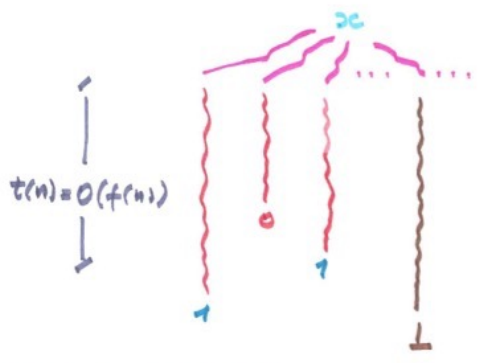 x
.... ....
t(n) = O(f(n))
0
1
1
⊥